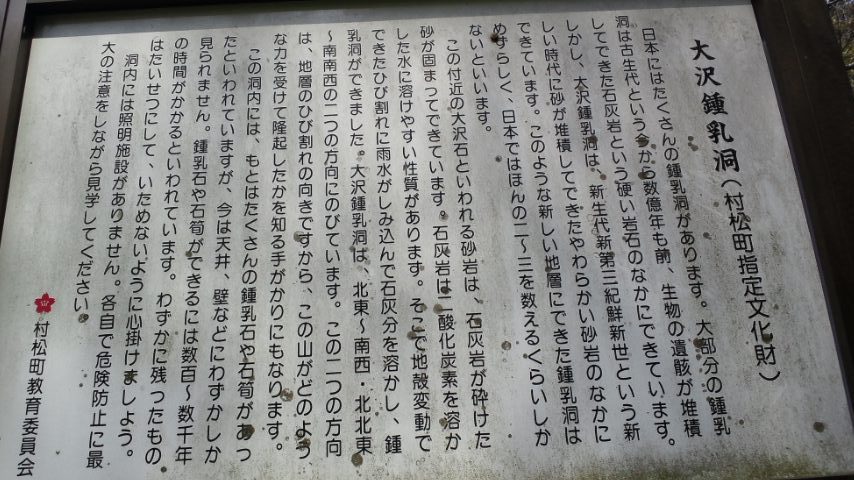 大沢鍾乳洞(村松町指定文化財)
日本にはたくさんの鍾乳洞があります。大部分の鍾乳
洞は古生代という今から数億年も前、生物の遺骸が堆積
してできた石灰岩という硬い岩石のなかにできています。
しかし、大沢鍾乳洞は、新生代新第三紀鮮新世という新
しい時代に砂が堆積してできたやわらかい砂岩のなかに
できています。このような新しい地層にできた鍾乳洞は
めずらしく、日本ではほんの二〜三を数えるくらいしか
ないといいます。
この付近の大沢石といわれる砂岩は、石灰岩が砕けた
砂が固まってできています。石灰岩は二酸化炭素を溶か
した水に溶けやすい性質があります。そこで地殻変動で
できたひび割れに雨水がしみ込んで石灰分を溶かし、鍾
乳洞ができました。大沢鍾乳洞は、北東〜南西・北北東
〜南南西の二つの方向にのびています。この二つの方向
は、地層のひび割れの向きですから、この山がどのよう
な力を受けて隆起したかを知る手がかりにもなります。
この洞内には、もとはたくさんの鍾乳石や石筍があっ
たといわれていますが、今は天井、壁などにわずかしか
見られません。鍾乳石や石筍ができるには数百〜数千年
の時間がかかるといわれています。わずかに残ったもの
はたいせつにして、いためないように心掛けましょう。
洞内には照明施設がありません。各自で危険防止に最
大の注意をしながら見学してください。
村松町教育委員会